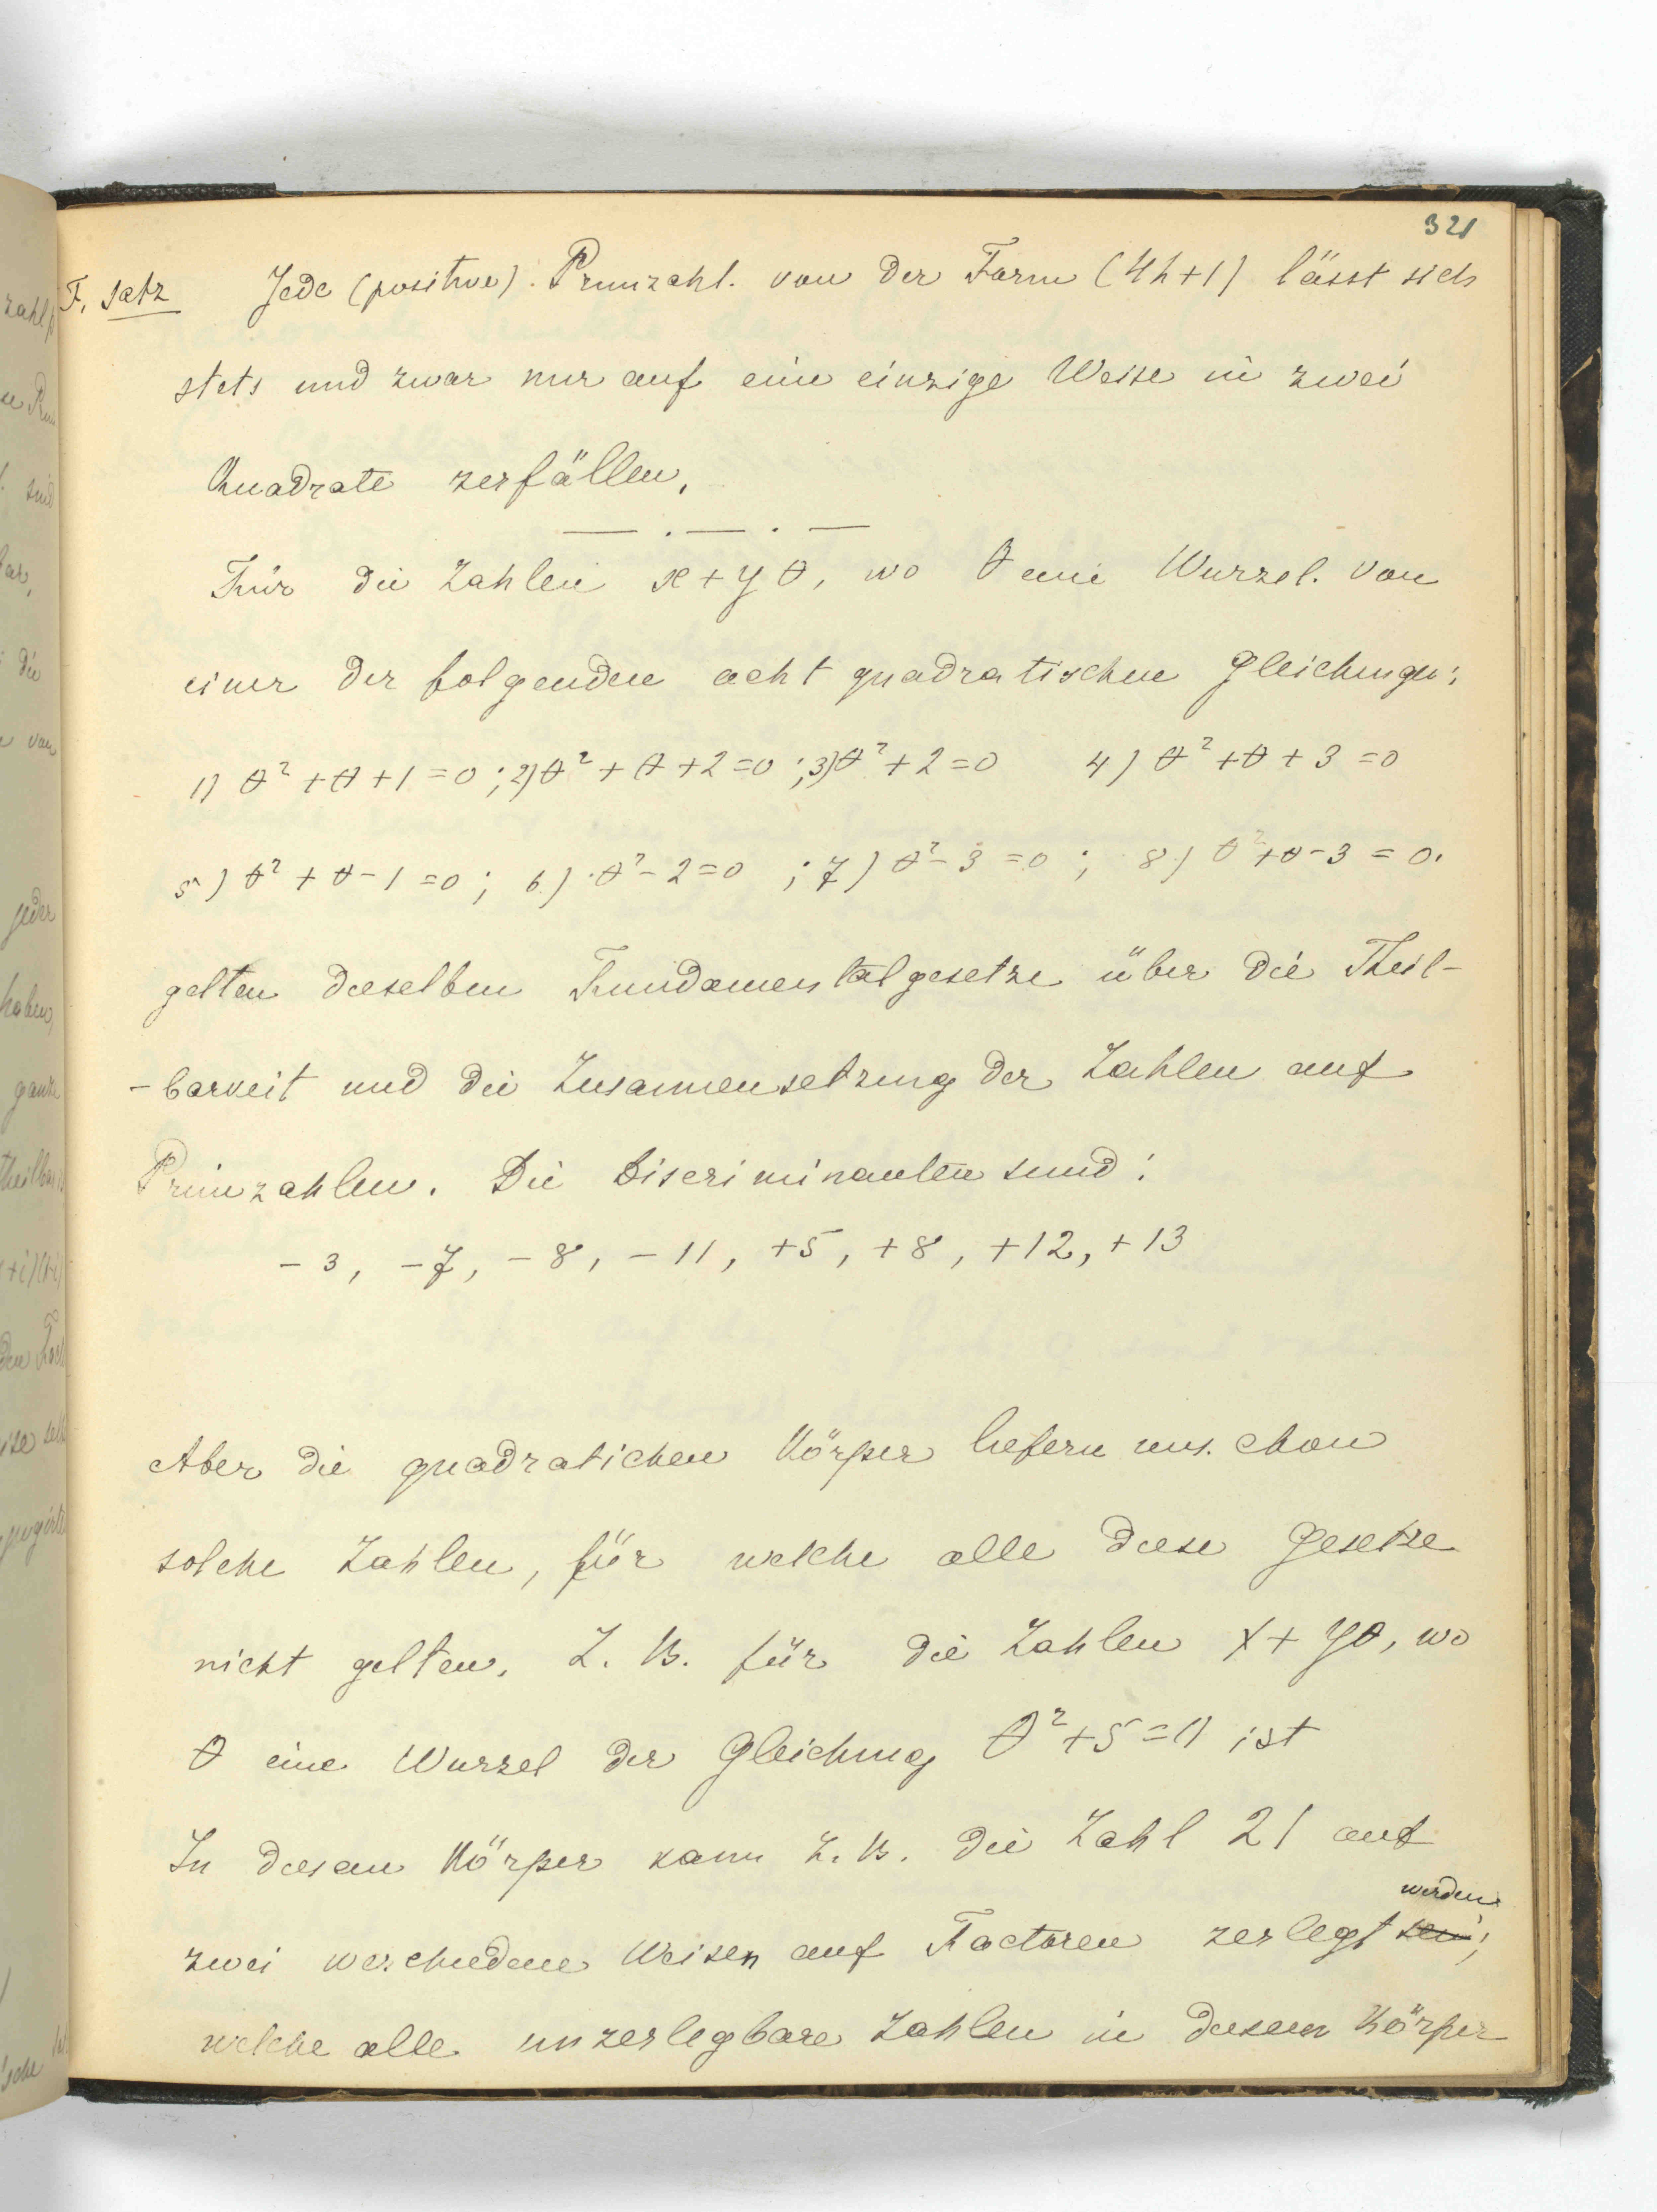 321
F. Satz Jede (positive). Primzahl. von der Form (4h+1) lässt sich
stets und zwar nur auf eine einzige Weise in zwei
Quadrate zerfällen.
Für die Zahlen x+yθ, wo θ eine Wurzel. von
einer der folgenden acht quadratischen Gleichungen:
1) θ²+θ+1=0; 2) θ²+θ+2=0; 3) θ²+2=0 4) θ²+θ+3=0
5) θ²+θ-1=0; 6) θ²-2=0; 7) θ²-3=0; 8) θ²+θ-3=0.
gelten dieselben Fundamentalgesetze über die Theil-
-barkeit und die Zusammensetzung der Zahlen auf
Primzahlen. Die Discriminanten sind:
-3, -7, -8, -11, +5, +8, +12, +13
Aber die quadratichen Körper liefern uns. chon
solche Zahlen, für welche alle diese Gesetze
nicht gelten. Z. B. für die Zahlen x+yθ, wo
θ eine Wurzel der Gleichung θ²+5=0 ist
In diesem Körper kann Z. B. die Zahl 21 auf
werden
zwei verchiedene Weisen auf Factoren zerlegt sein;
welche alle unzerlegbare Zahlen in diesem Körper